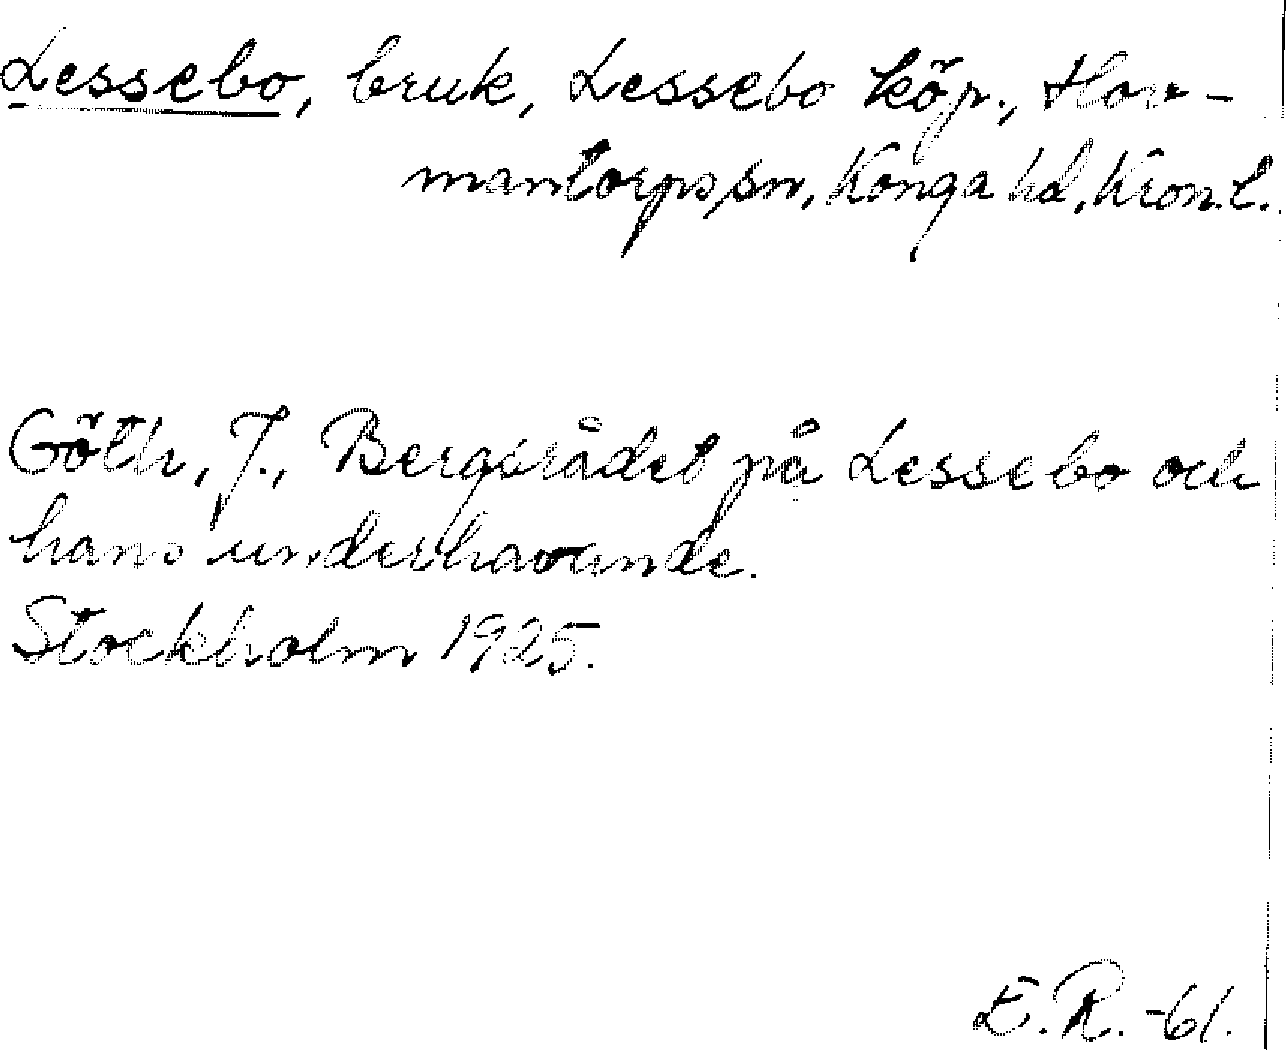 Lessebo, bruk, Lessebo köp., Hov-
mantorps sn, Konga hd, Kron. l.
Göth, J., Bergsrådet på Lessebo och
hans underhavande.
Stockholm 1925.
E.R. -61.